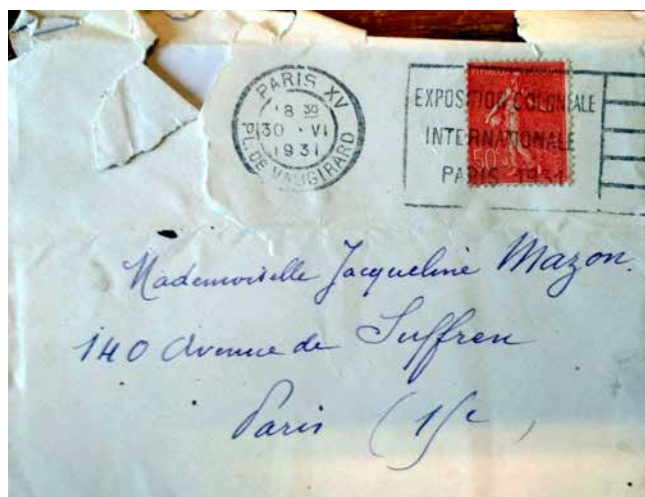 PARIS XV
18 30
30 · VI
1931
PL. DE VAUGIRARD
EXPOSITION COLONIALE
INTERNATIONALE
PARIS 1931
50
Mademoiselle Jacqueline Mazon.
140 Avenue de Suffren
Paris (15e)